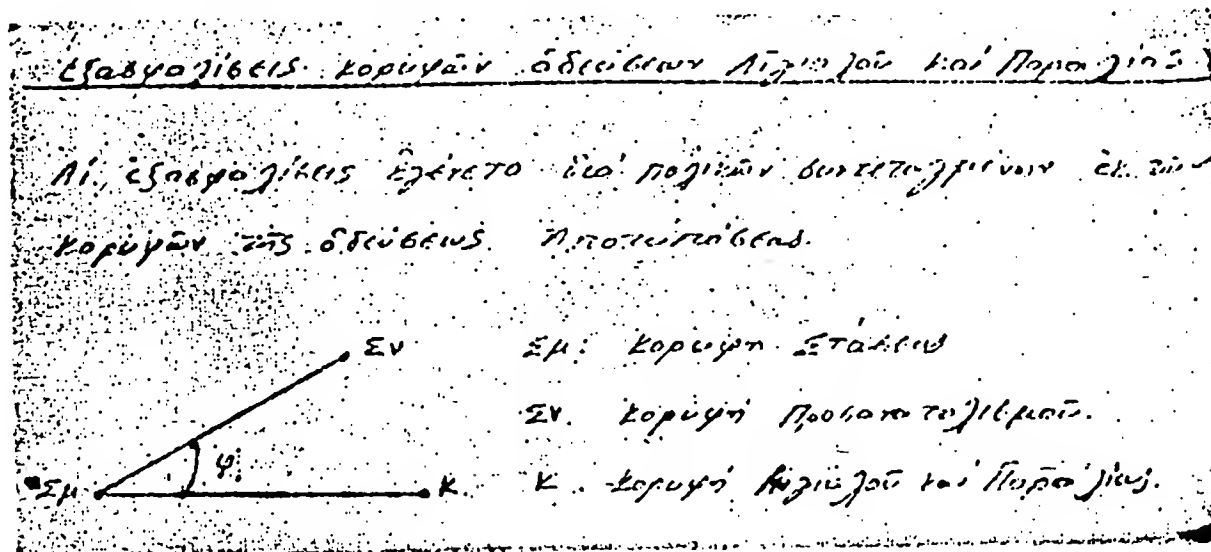 Ἐξασφαλίσεις κορυφῶν ὁδεύσεων Αἰγιαλοῦ καί Παραλίας
Αἱ ἐξασφαλίσεις ἐγένετο διά πολικῶν συντεταγμένων ἐκ τῶν
κορυφῶν τῆς ὁδεύσεως Ἀποτυπώσεως.
Σν Σμ: Κορυφή Στάσεως
Σν. Κορυφή Προσανατολισμοῦ.
Σμ φ Κ. Κ. Κορυφή Αἰγιαλοῦ καί Παραλίας.